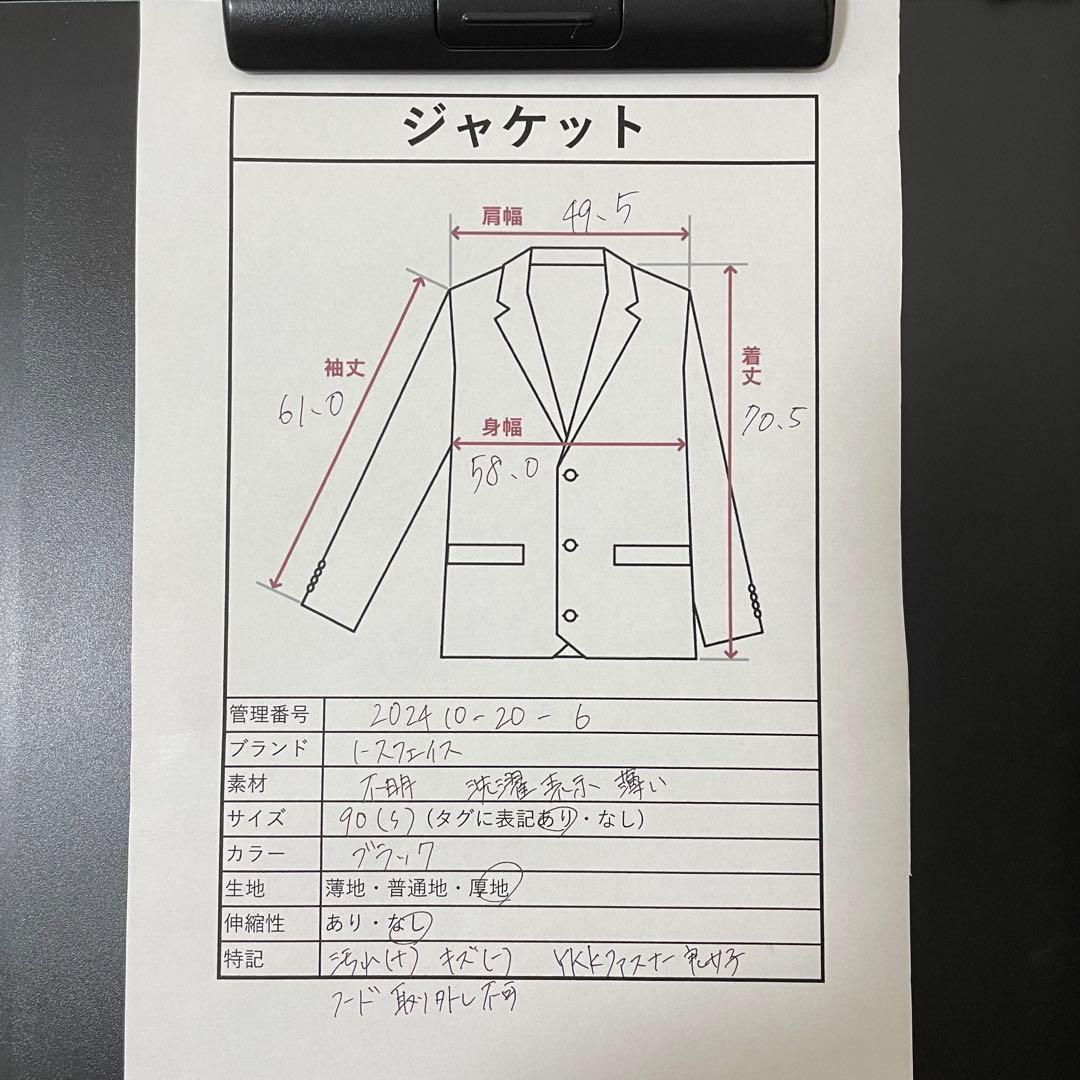 ジャケット
肩幅 49.5
袖丈
61.0
着丈
70.5
身幅
58.0
管理番号 202410-20-6
ブランド ノースフェイス
素材 不明 洗濯表示 薄い
サイズ 90(S)(タグに表記あり・なし)
カラー ブラック
生地 薄地・普通地・厚地
伸縮性 あり・なし
特記 汚れ(+) キズ(-) YKKファスナー
フード取り外し不可